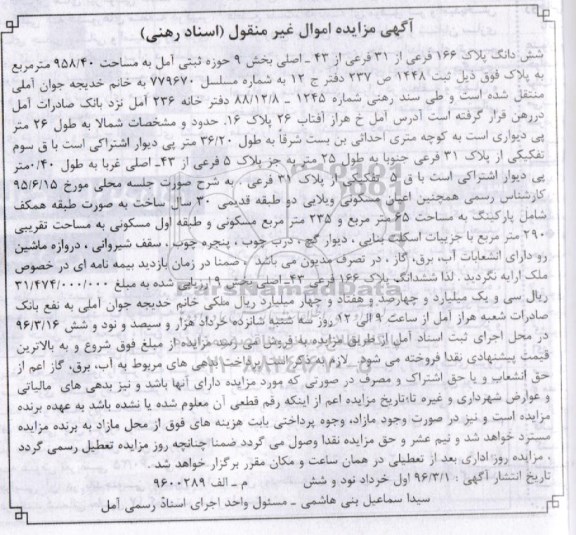 آگهی مزایده اموال غیر منقول (اسناد رهنی)
شش دانگ پلاک ۱۶۶ فرعی از ۳۱ فرعی از ۴۳ ـ اصلی بخش ۹ حوزه ثبتی آمل به مساحت ۹۵۸/۴۰ مترمربع
به پلاک فوق ذیل ثبت ۱۴۴۸ ص ۲۳۷ دفتر ج ۱۲ به شماره مسلسل ۷۷۹۶۷۰ به خانم خدیجه جوان آملی
منتقل شده است و طی سند رهنی شماره ۱۲۴۵ ـ ۸۸/۱۲/۸ دفتر خانه ۲۳۶ آمل نزد بانک صادرات آمل
دررهن قرار گرفته است آدرس آمل خ هراز آفتاب ۲۶ پلاک ۱۶. حدود و مشخصات شمالا به طول ۲۶ متر
پی دیواری است به کوچه متری احداثی بن بست شرقا به طول ۳۶/۲۰ متر پی دیوار اشتراکی است با ق سوم
تفکیکی از پلاک ۳۱ فرعی جنوبا به طول ۲۵ متر به جز پلاک ۵ فرعی از ۴۳ـ اصلی غربا به طول ۰/۴۰متر
پی دیوار اشتراکی است با ق ۵ تفکیکی از پلاک ۳۱ فرعی . به شرح صورت جلسه محلی مورخ ۹۵/۶/۱۵
کارشناس رسمی همچنین اعیان مسکونی ویلایی دو طبقه قدیمی ۳۰ سال ساخت به صورت طبقه همکف
شامل پارکینگ به مساحت ۶۵ متر مربع و ۲۳۵ متر مربع مسکونی و طبقه اول مسکونی به مساحت تقریبی
۲۹۰ متر مربع با جزییات اسکلت بنایی ، دیوار گچ ، درب چوب ، پنجره چوب ، سقف شیروانی ، دروازه ماشین
رو دارای انشعابات آب، برق، گاز ، در تصرف مدیون می باشد . ضمنا در زمان بازدید بیمه نامه ای در خصوص
ملک ارایه نگردید . لذا ششدانگ پلاک ۱۶۶ فرعی ۴۳ـ اصلی بخش ۹ ارزیابی شده به مبلغ ۳۱/۴۷۴/۰۰۰/۰۰۰
ریال سی و یک میلیارد و چهارصد و هفتاد و چهار میلیارد ریال ملکی خانم خدیجه جوان آملی به نفع بانک
صادرات شعبه هراز آمل از ساعت ۹ الی ۱۲ روز سه شنبه شانزده خرداد هزار و سیصد و نود و شش ۹۶/۳/۱۶
در محل اجرای ثبت اسناد آمل از طریق مزایده به فروش می رسد مزایده از مبلغ فوق شروع و به بالاترین
قیمت پیشنهادی نقدا فروخته می شود . لازم به ذکر است پرداخت بدهی های مربوط به آب، برق، گاز اعم از
حق انشعاب و یا حق اشتراک و مصرف در صورتی که مورد مزایده دارای آنها باشد و نیز بدهی های مالیاتی
و عوارض شهرداری و غیره تا؛تاریخ مزایده اعم از اینکه رقم قطعی آن معلوم شده یا نشده باشد به عهده برنده
مزایده است و نیز در صورت وجود مازاد، وجوه پرداختی بابت هزینه های فوق از محل مازاد به برنده مزایده
مسترد خواهد شد و نیم عشر و حق مزایده نقدا وصول می گردد.ضمنا چنانچه روز مزایده تعطیل رسمی گردد
، مزایده روز اداری بعد از تعطیلی در همان ساعت و مکان مقرر برگزار خواهد شد .
تاریخ انتشار آگهی : ۹۶/۳/۱ اول خرداد نود و شش م ـ الف ۹۶۰۰۲۸۹
سیدا سماعیل بنی هاشمی ـ مسئول واحد اجرای اسناد رسمی آمل